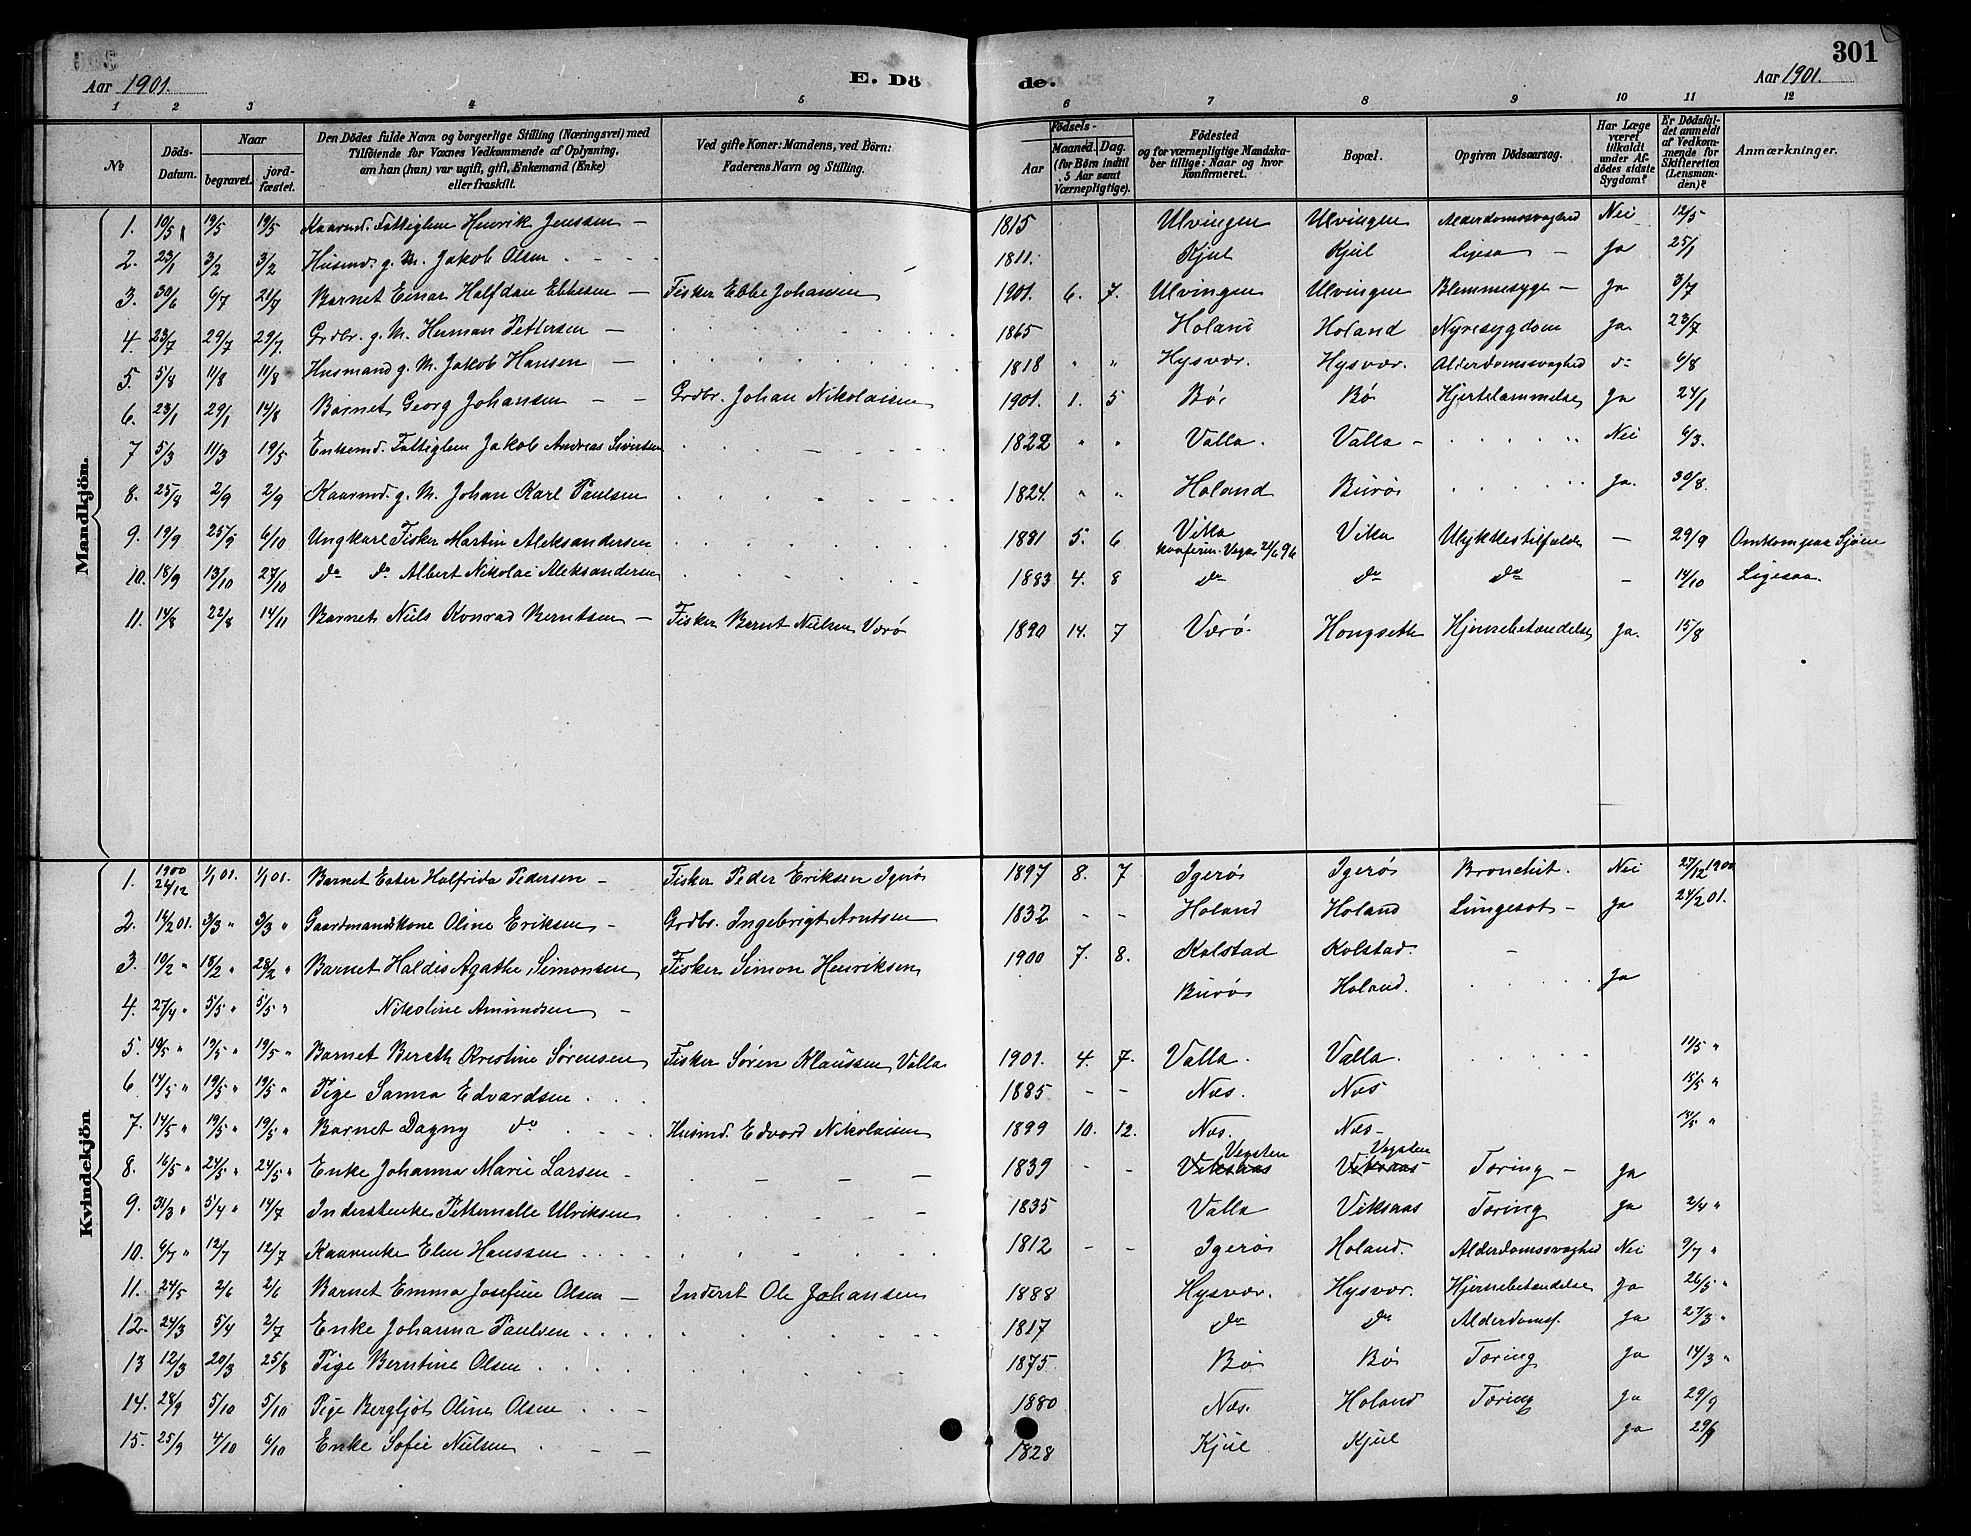 301
Aar 1901. E. Dö de. Aar 1901.
1 2 3 4 5 6 7 8 9 10 11 12
No
Döds-Datum.
Naar
begravet.
jord-fæstet.
Den Dödes fulde Navn og borgerlige Stilling (Næringsvei) med
Tilföiende for Voxnes Vedkommende af Oplysning,
om han (hun) var ugift, gift, Enkemand (Enke)
eller fraskilt.
Ved gifte Koner: Mandens, ved Börn:
Faderens Navn og Stilling.
Födsels-
Aar
Maaned. Dag.
(for Börn indtil
5 Aar samt
Værnepligtige).
Födested
og for værnepligtige Mandska-
ber tillige: Naar og hvor
Konfirmeret.
Bopæl.
Opgiven Dödsaarsag.
Har Læge
været
tilkaldt
under Af-
dödes sidste
Sygdom?
Er Dödsfal-
det anmeldt
af Vedkom-
mende for
Skifteretten
(Lensman-
den)?
Anmærkninger.
Mandkjön.
1. 10/5 19/5 19/5 Kaarmd. Fattiglem Henrik Jenssen — 1815 Ulvingen Ulvingen Alderdomssvaghed Nei 12/5
2. 23/1 3/2 3/2 Husmd. g. M. Jakob Olsen 1811. Kjul Kjul Ligesa — Ja 25/1
3. 30/6 6/7 21/7 Barnet Einar Halfdan Ebbesen — Fisker Ebbe Johansen 1901. 6. 7. Ulvingen Ulvingen Blemmesyge — Ja 3/7
4. 23/7 29/7 29/7. Grdbr. g. M. Herman Pettersen — 1865 Holand Holand Nyresygdom ja. 23/7
5. 5/8 11/8 11/8 Husmand g. M. Jakob Hansen — 1818 " " Hysvær. Hysvær. Alderdomssvaghed do 6/8
6. 23/1 29/1 14/8 Barnet Georg Johansen — — Grdbr. Johan Nikolaisen 1901. 1. 5 Bø Bø Hjertelammelse Ja 24/1
7 5/3 11/3 19/5 Enkemd. Fattiglem Jakob Andreas Sivertsen 1822 " " Valla. Valla — " Nei 6/3.
8. 25/8 2/9 2/9 Kaarmd. g. M. Johan Karl Paulsen 1824. " " Holand Burø " ja. 30/8.
9. 19/9 25/9 6/10 Ungkarl Fisker Martin Aleksandersen 1881 5. 6 Vika Vika Ulykkestilfælde — 29/9 Omkom paa Sjøen
konfirm. Vega 21/6 96
10. 18/9 13/10 27/10 do do Albert Nikolai Aleksandersen 1883 4. 8 do do do — 14/10 Ligesaa.
11. 14/8 22/8 14/11 Barnet Nils Konrad Berntsen — Fisker Bernt Nielsen Værø 1890 14. 7 Værø. Hongseth Hjernebetændelse ja. 15/8
Kvindekjön
1. 1900 24/12 1/1 01. 1/1 01. Barnet Ester Halfrida Pedersen — Fisker Peder Eriksen Igerøs 1897 8. 7 Igerøs Igerøs Bronchit. Nei 27/12 1900
2. 14/2 01. 3/3 " 3/3 " Gaardmandskone Oline Eriksen — Grdbr. Ingebrigt Arntsen 1832 - - Holand Holand Lungesot — ja 24/2 01.
3. 10/2 " 18/2 " 28/2 " Barnet Haldis Agathe Simonsen Fisker Simon Henriksen 1900 7. 8. Kolstad Kolstad. —
4. 27/4 " 5/5 " 5/5 " Nikoline Amundsen — Burø Holand. ja
5. 10/5 " 19/5 " 19/5 " Barnet Bereth Kristine Sørensen Fisker Søren Klaussen Valla 1901. 4. 7. Valla. Valla. 11/5 "
6 14/5 " 19/5 " 19/5 " Pige Sanna Edvardsen 1885 - - Næs. Næs 15/5 "
7. 14/5 " 19/5 " 19/5 " Barnet Dagny do Husmd. Edvard Nikolaisen 1899 10. 12. Næs. Næs — 15/5 "
Vegsten Vegsten
8. 16/5 " 24/5 " 24/5 " Enke Johanna Marie Larsen — 1839 - - Viksaas Viksaas Tæring — ja
9. 31/3 " 5/4 " 14/7 Inderstenke Petternelle Ulriksen 1835 Valla Viksaas Tæring ja 2/4 "
10. 6/7 " 12/7 12/7 Kaarenke Elen Hanssen 1812 - - Igerøs Holand. Alderdomssvaghed Nei 9/7 "
11. 24/5 2/6 2/6 Barnet Emma Josefine Olsen — Inderst Ole Johansen 1888 Hysvær. Hysvær. Hjernebetændelse Ja 26/5 "
12. 24/3 5/4 2/7 Enke Johanna Paulsen 1817 do do Alderdomsf. ja 27/3 "
13 12/3 20/3 25/8 Pige Berntine Olsen 1875 Bø Bø Tæring ja 14/3 "
14. 28/9 5/10 5/10 Pige Bergljot Oline Olsen 1880 Næs. Holand Tæring ja 29/9
15. 25/9 4/10 6/10 Enke Sofie Nielsen 1828 Kjul Kjul ja 29/9